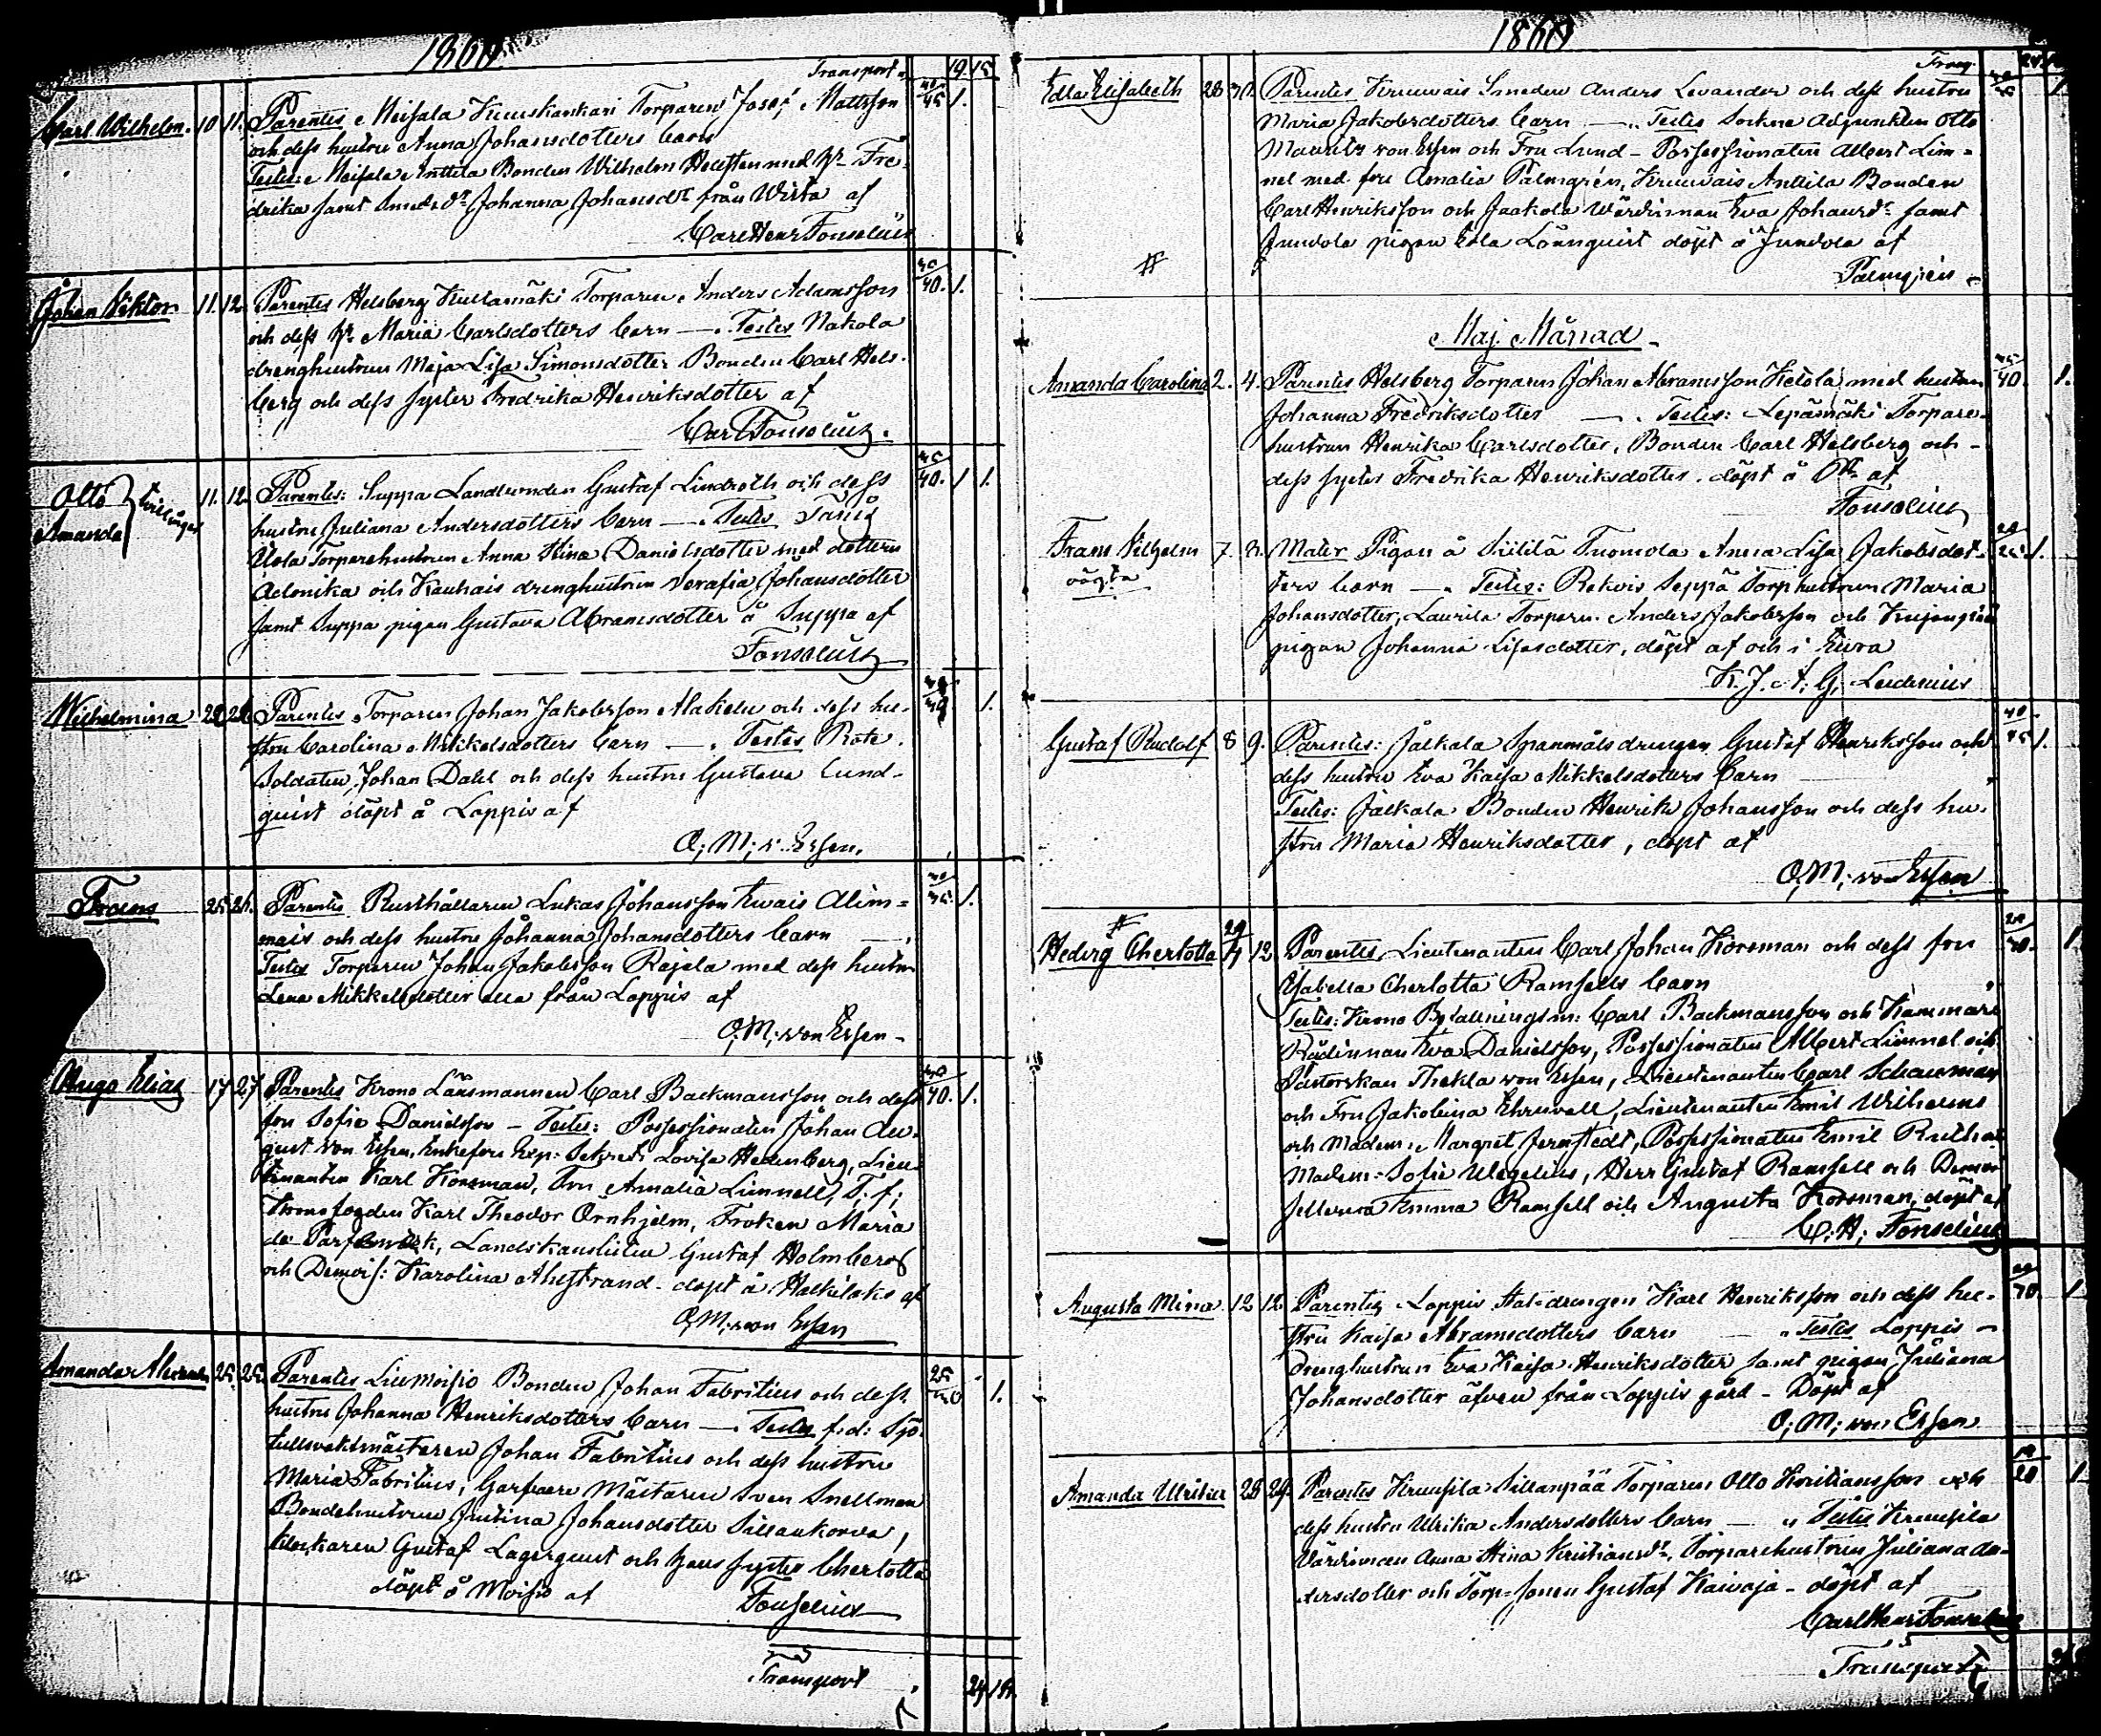 1860
Transport 19. 15.
Carl Wilhelm. 10 11. Parentes Neisala Kuuskankari Torparen Josef Mattsson 40/45 1.
och dess hustru Anna Johansdotters barn
Testes: Neisala Anttila Bonden Wilhelm med hu Fre-
drika samt Johanna Johansdr från Wirta af
Carl Henr Fonselius
Johan Viktor 11. 12. Parentes Helsberg Kullamäki Torparen Anders Adamsson 30/40. 1.
och dess hu Maria Carlsdotters barn — Testes Nakola
drenghustrun Maja Lisa Simonsdotter Bonden Carl Hels-
berg och dess syster Fredrika Henriksdotter af
Carl Fonselius.
Otto
Amanda } tvillingar 11. 12. Parentes: Suppa Landbonden Gustaf Lindroth och dess 40. 1 1.
hustru Juliana Andersdotters barn — Testes
Torparehustrun Anna Stina Danielsdotter med dottern
och Kauhais drenghustrun Serafia Johansdotter
samt Suppa pigan Gustava Abramsdotter å Suppa af
Fonselius
Wilhelmina 22 26 Parentes Torparen Johan Jakobsson Alakylu och dess hu- 1.
stru Carolina Mikkelsdotters barn — Testes Rote
Soldaten Johan Dahl och dess hustru Gustava Lund-
quist döpt å Lappis af
O; M; v. Essen.
Frans 25 26. Parentes Rusthållaren Lukas Johansson Ewais Alim- 1.
mais och dess hustru Johanna Johansdotters barn —
Testes Torparen Johan Jakobsson Rajala med dess hustru
Lena Mikkelsdotter alla från Lappis af
O; M; von Essen -
Hugo Elias 17 27 Parentes Krono Länsmannen Carl Backmansson och dess 40. 1.
fru Sofie Danielsson - Testes: Possessionaten Johan Au-
gust von Essen, Enkefru Exp: Sekret: Lovisa Hedenberg, Lieu-
tenanten Karl Korsman, Fru Amalia Limnell, T. f;
Kronofogden Karl Theodor Örnhjelm, Fröken Maria
de Landskanslisten Gustaf Holmberg
och Demois: Karolina Ahlstrand - döpt å Halkilaks af
O; M; von Essen
Amanda 25. 25. Parentes Liemoisio Bonden Johan Fabritius och dess 1.
hustru Johanna Henriksdotters barn — Testes f. d: Sjö-
tullsvaktmästaren Johan Fabritius och dess hustru
Maria Fabritius, Garfvare Mästaren Sven Snellman
Bondehustrun Justina Johansdotter Sillankorva,
Klockaren Gustaf Lagerquist och hans syster Charlotta
döpt å Moisio af Fonselius
Transport
1860
Edla Elisabeth 28 30. Parentes Kruuvais Smeden Anders Levander och dess hustru 1.
Maria Jakobsdotters barn —. Testes Sockne Adjunkten Otto
Mauritz von Essen och Fru Lund - Possessionaten Albert Lim-
nel med fru Amalia Palmgrén, Kruuvais Anttila Bonden
Carl Henriksson och Jaakola Wärdinnan Eva Johansdr samt
Junnola pigan Edla Lönnquist döpt å Junnola af
Palmgrén
Maj Månad
Amanda Carolina 2. 4. Parentes Helsberg Torparen Johan Abramsson Ketola med hustru 40. 1.
Johanna Fredriksdotter —. Testes: Lepämäki Torpare-
hustrun Henrika Carlsdotter, Bonden Carl Helsberg och
dess syster Fredrika Henriksdotter. döpt å af
Fonselius
Frans Vilhelm
oägta 7. Mater Pigan å Tuomola Anna Lisa Jakobsdot- 1.
ters barn —. Testes: Seppä Torphustrun Maria
Johansdotter, Laurila Torparen Anders Jakobsson och
pigan Johanna Lisasdotter, döpt af och i Eura
K. J. A; G;
Gustaf Rudolf 8 9. Parentes: Jalkala Spanmålsdrengen Gustaf Henriksson och 1.
dess hustru Eva Kaisa Mikkelsdotters barn
Testes: Jalkala Bonden Henrik Johansson och dess hu-
stru Maria Henriksdotter, döpt af
O; M; von Essen
Hedvig Charlotta 29/4 12 Parentes Lieutenanten Carl Johan Korsman och dess fru 1.
Isabella Charlotta Ramsells barn
Testes: Krono Befallningsm: Carl Backmansson och Kammare
Rådinnan Eva Danielsson, Possessionaten Albert Limnel och
Pastorskan Thekla von Essen, Lieutenanten Carl Schauman
och Fru Jakobina Ehrnvall, Lieutenanten Emil Wilhelms
och Madem: Margret Jernstedt, Possessionaten Emil
Madem: Sofie Wegelius, Herr Gustaf Ramsell och Demoi-
sellerna Emma Ramsell och Augusta Korsman, döpt af
C: H; Fonselius
Augusta Mina 12 12. Parentes Lappis Statdrengen Karl Henriksson och dess hu- 1
stru Kaisa Abramsdotters barn — Testes Lappis
Drenghustrun Eva Kaisa Henriksdotter samt pigan Juliana
Johansdotter äfven från Lappis gård - Döpt af
O; M; von Essen
Amanda Ulrika 28 29. Parentes Krunsila Sillanpää Torparen Otto Kristiansson och 1
dess hustru Ulrika Andersdotters barn — Testes Krunsila
Värdinnan Anna Stina Kristiansdr, Torparehustrun Juliana An-
dersdotter och Torp-sonen Gustaf Kaivoja - döpt af
Carl Henr Fonselius
Transport